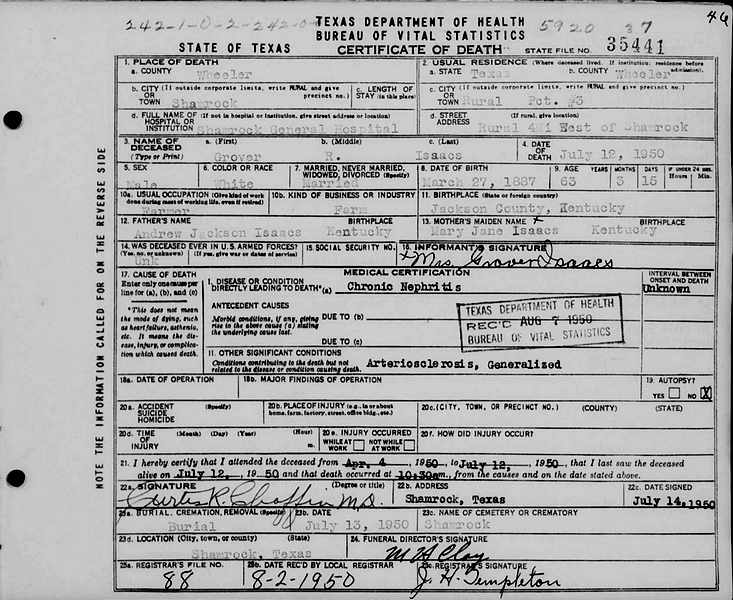 242-1-0-2-242-0
TEXAS DEPARTMENT OF HEALTH
BUREAU OF VITAL STATISTICS
5920 37
46
STATE OF TEXAS
CERTIFICATE OF DEATH
STATE FILE NO. 35441
1. PLACE OF DEATH
a. COUNTY Wheeler
2. USUAL RESIDENCE (Where deceased lived. If institution: residence before admission).
a. STATE Texas b. COUNTY Wheeler
b. CITY (If outside corporate limits, write RURAL and give precinct no.)
OR
TOWN Shamrock
c. LENGTH OF STAY (in this place)
c. CITY (If outside corporate limits, write RURAL and give precinct no.)
OR
TOWN Rural Pct. #3
d. FULL NAME OF (If not in hospital or institution, give street address or location)
HOSPITAL OR
INSTITUTION Shamrock General Hospital
d. STREET (If rural, give location)
ADDRESS Rural West of Shamrock
3. NAME OF DECEASED (Type or Print)
a. (First) Grover
b. (Middle) R.
c. (Last) Isaacs
4. DATE OF DEATH July 12, 1950
5. SEX Male
6. COLOR OR RACE White
7. MARRIED, NEVER MARRIED, WIDOWED, DIVORCED (Specify) Married
8. DATE OF BIRTH March 27, 1887
9. AGE YEARS 63 MONTHS 3 DAYS 15 IF UNDER 24 HRS. Hours Min.
10a. USUAL OCCUPATION (Give kind of work done during most of working life, even if retired) Farmer
10b. KIND OF BUSINESS OR INDUSTRY Farm
11. BIRTHPLACE (State or foreign country) Jackson County, Kentucky
12. FATHER'S NAME BIRTHPLACE
Andrew Jackson Isaacs Kentucky
13. MOTHER'S MAIDEN NAME BIRTHPLACE
Mary Jane Isaacs Kentucky
14. WAS DECEASED EVER IN U.S. ARMED FORCES?
(Yes, no, or unknown) (If yes, give war or dates of service)
Unk
15. SOCIAL SECURITY NO.
16. INFORMANT'S SIGNATURE
x Mrs. Grover Isaacs
17. CAUSE OF DEATH
Enter only one cause per line for (a), (b), and (c)
*This does not mean the mode of dying, such as heart failure, asthenia, etc. It means the disease, injury, or complication which caused death.
MEDICAL CERTIFICATION
INTERVAL BETWEEN ONSET AND DEATH
I. DISEASE OR CONDITION DIRECTLY LEADING TO DEATH*(a) Chronic Nephritis
Unknown
ANTECEDENT CAUSES
Morbid conditions, if any, giving rise to the above cause (a) stating the underlying cause last.
DUE TO (b)
DUE TO (c)
TEXAS DEPARTMENT OF HEALTH
REC'D AUG 7 1950
BUREAU OF VITAL STATISTICS
11. OTHER SIGNIFICANT CONDITIONS
Conditions contributing to the death but not related to the disease or condition causing death.
Arteriosclerosis, Generalized
18a. DATE OF OPERATION
18b. MAJOR FINDINGS OF OPERATION
19. AUTOPSY?
YES NO X
20a. ACCIDENT SUICIDE HOMICIDE (Specify)
20b. PLACE OF INJURY (e.g., in or about home, farm, factory, street, office bldg., etc.)
20c. (CITY, TOWN, OR PRECINCT NO.) (COUNTY) (STATE)
20d. TIME OF INJURY (Month) (Day) (Year) (Hour) m.
20e. INJURY OCCURRED WHILE AT WORK NOT WHILE AT WORK
20f. HOW DID INJURY OCCUR?
21. I hereby certify that I attended the deceased from Apr. 4, 1950, to July 12, 1950, that I last saw the deceased
alive on July 12, 1950 and that death occurred at 10:30am., from the causes and on the date stated above.
22a. SIGNATURE (Degree or title)
Curtis R. Chaffin M.D.
22b. ADDRESS
Shamrock, Texas
22c. DATE SIGNED
July 14, 1950
23a. BURIAL, CREMATION, REMOVAL (Specify)
Burial
23b. DATE
July 13, 1950
23c. NAME OF CEMETERY OR CREMATORY
Shamrock
23d. LOCATION (City, town, or county) (State)
Shamrock, Texas
24. FUNERAL DIRECTOR'S SIGNATURE
M H Clay
25a. REGISTRAR'S FILE NO.
88
25b. DATE REC'D BY LOCAL REGISTRAR
8-2-1950
25c. REGISTRAR'S SIGNATURE
J. H. Templeton
NOTE THE INFORMATION CALLED FOR ON THE REVERSE SIDE